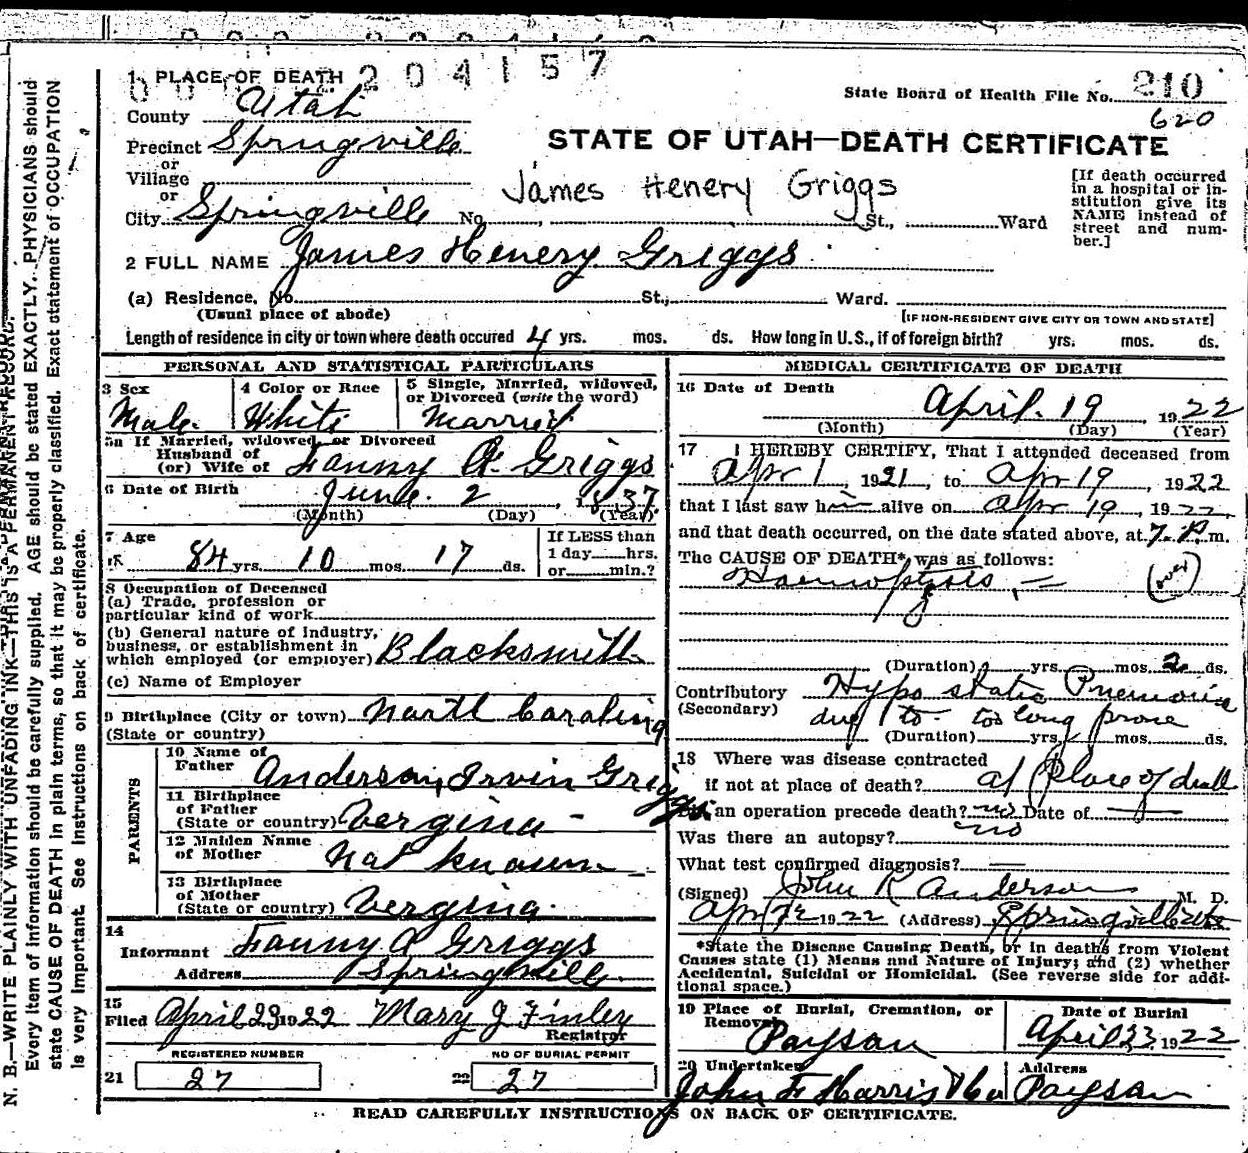 204157
1 PLACE OF DEATH
210
State Board of Health File No.
620
County Utah
STATE OF UTAH—DEATH CERTIFICATE
Precinct Springville
or
Village
or
James Henery Griggs
[If death occurred in a hospital or institution give its NAME instead of street and number.]
City Springville No. St., Ward
2 FULL NAME James Henery Griggs
(a) Residence, No. St., Ward.
(Usual place of abode)
[IF NON-RESIDENT GIVE CITY OR TOWN AND STATE]
Length of residence in city or town where death occured 4 yrs. mos. ds. How long in U.S., if of foreign birth? yrs. mos. ds.
PERSONAL AND STATISTICAL PARTICULARS
3 Sex
Male
4 Color or Race
White
5 Single, Married, widowed,
or Divorced (write the word)
Married
5a If Married, widowed, or Divorced
Husband of
(or) Wife of Fanny A. Griggs
6 Date of Birth June 2, 1837
(Month) (Day) (Year)
7 Age
84 yrs. 10 mos. 17 ds.
If LESS than
1 day hrs.
or min.?
8 Occupation of Deceased
(a) Trade, profession or
particular kind of work
(b) General nature of industry,
business, or establishment in
which employed (or employer) Blacksmith
(c) Name of Employer
9 Birthplace (City or town) North Carolina
(State or country)
PARENTS
10 Name of
Father Anderson Irvin Griggs
11 Birthplace
of Father
(State or country) Vergina
12 Maiden Name
of Mother Not known
13 Birthplace
of Mother
(State or country) Vergina
14
Informant Fanny A Griggs
Address Springville
15
Filed April 23 1922 Mary J Finley
Registrar
REGISTERED NUMBER
21 27
NO OF BURIAL PERMIT
22 27
MEDICAL CERTIFICATE OF DEATH
16 Date of Death
April 19 1922
(Month) (Day) (Year)
17 I HEREBY CERTIFY, That I attended deceased from
Apr 1, 1921, to Apr 19, 1922
that I last saw him alive on Apr 19, 1922
and that death occurred, on the date stated above, at 7 P. m.
The CAUSE OF DEATH* was as follows:
Haemoptysis (over)
(Duration) yrs. mos. 2 ds.
Contributory Hypo static Pnemonia
(Secondary) due to too long prone
(Duration) yrs. mos. ds.
18 Where was disease contracted
if not at place of death? at place of death
Did an operation precede death? no Date of
Was there an autopsy? no
What test confirmed diagnosis?
(Signed) John R Anderson M. D.
Apr 22 1922 (Address) Springville Utah
*State the Disease Causing Death, or in deaths from Violent
Causes state (1) Means and Nature of Injury; and (2) whether
Accidental, Suicidal or Homicidal. (See reverse side for addi-
tional space.)
19 Place of Burial, Cremation, or
Removal
Payson
Date of Burial
April 23 1922
20 Undertaker
John F Harris & Co
Address
Payson
READ CAREFULLY INSTRUCTIONS ON BACK OF CERTIFICATE.
N. B.—WRITE PLAINLY WITH UNFADING INK—THIS IS A PERMANENT RECORD.
Every item of information should be carefully supplied. AGE should be stated EXACTLY. PHYSICIANS should
state CAUSE OF DEATH in plain terms, so that it may be properly classified. Exact statement of OCCUPATION
is very important. See instructions on back of certificate.